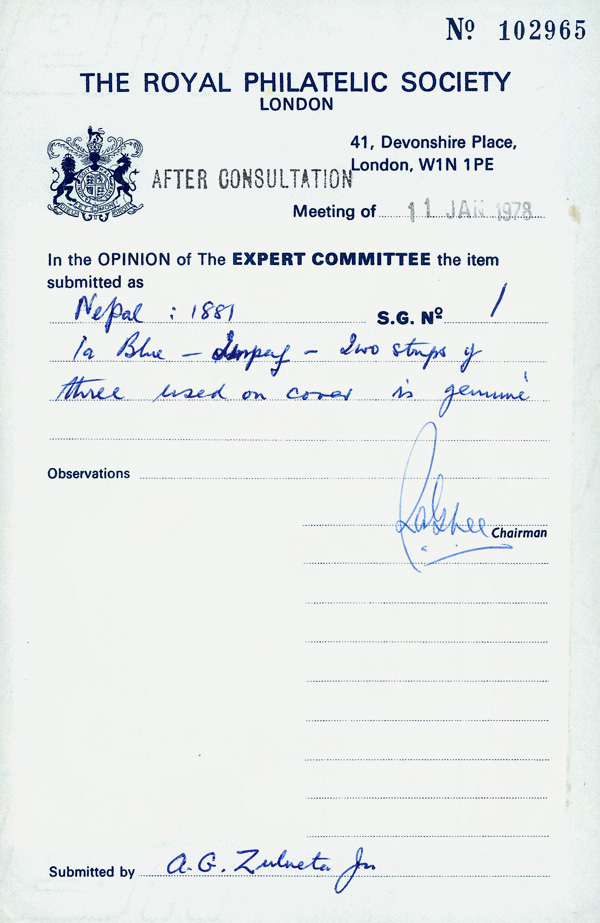 Nº 102965
THE ROYAL PHILATELIC SOCIETY
LONDON
41, Devonshire Place,
London, W1N 1PE
AFTER CONSULTATION
Meeting of 11 JAN 1978
In the OPINION of The EXPERT COMMITTEE the item
submitted as
Nepal : 1881 S.G. Nº 1
1a Blue – Imperf – Two strips of
three used on cover is genuine
Observations
Chairman
Submitted by A. G. Zulueta Jr